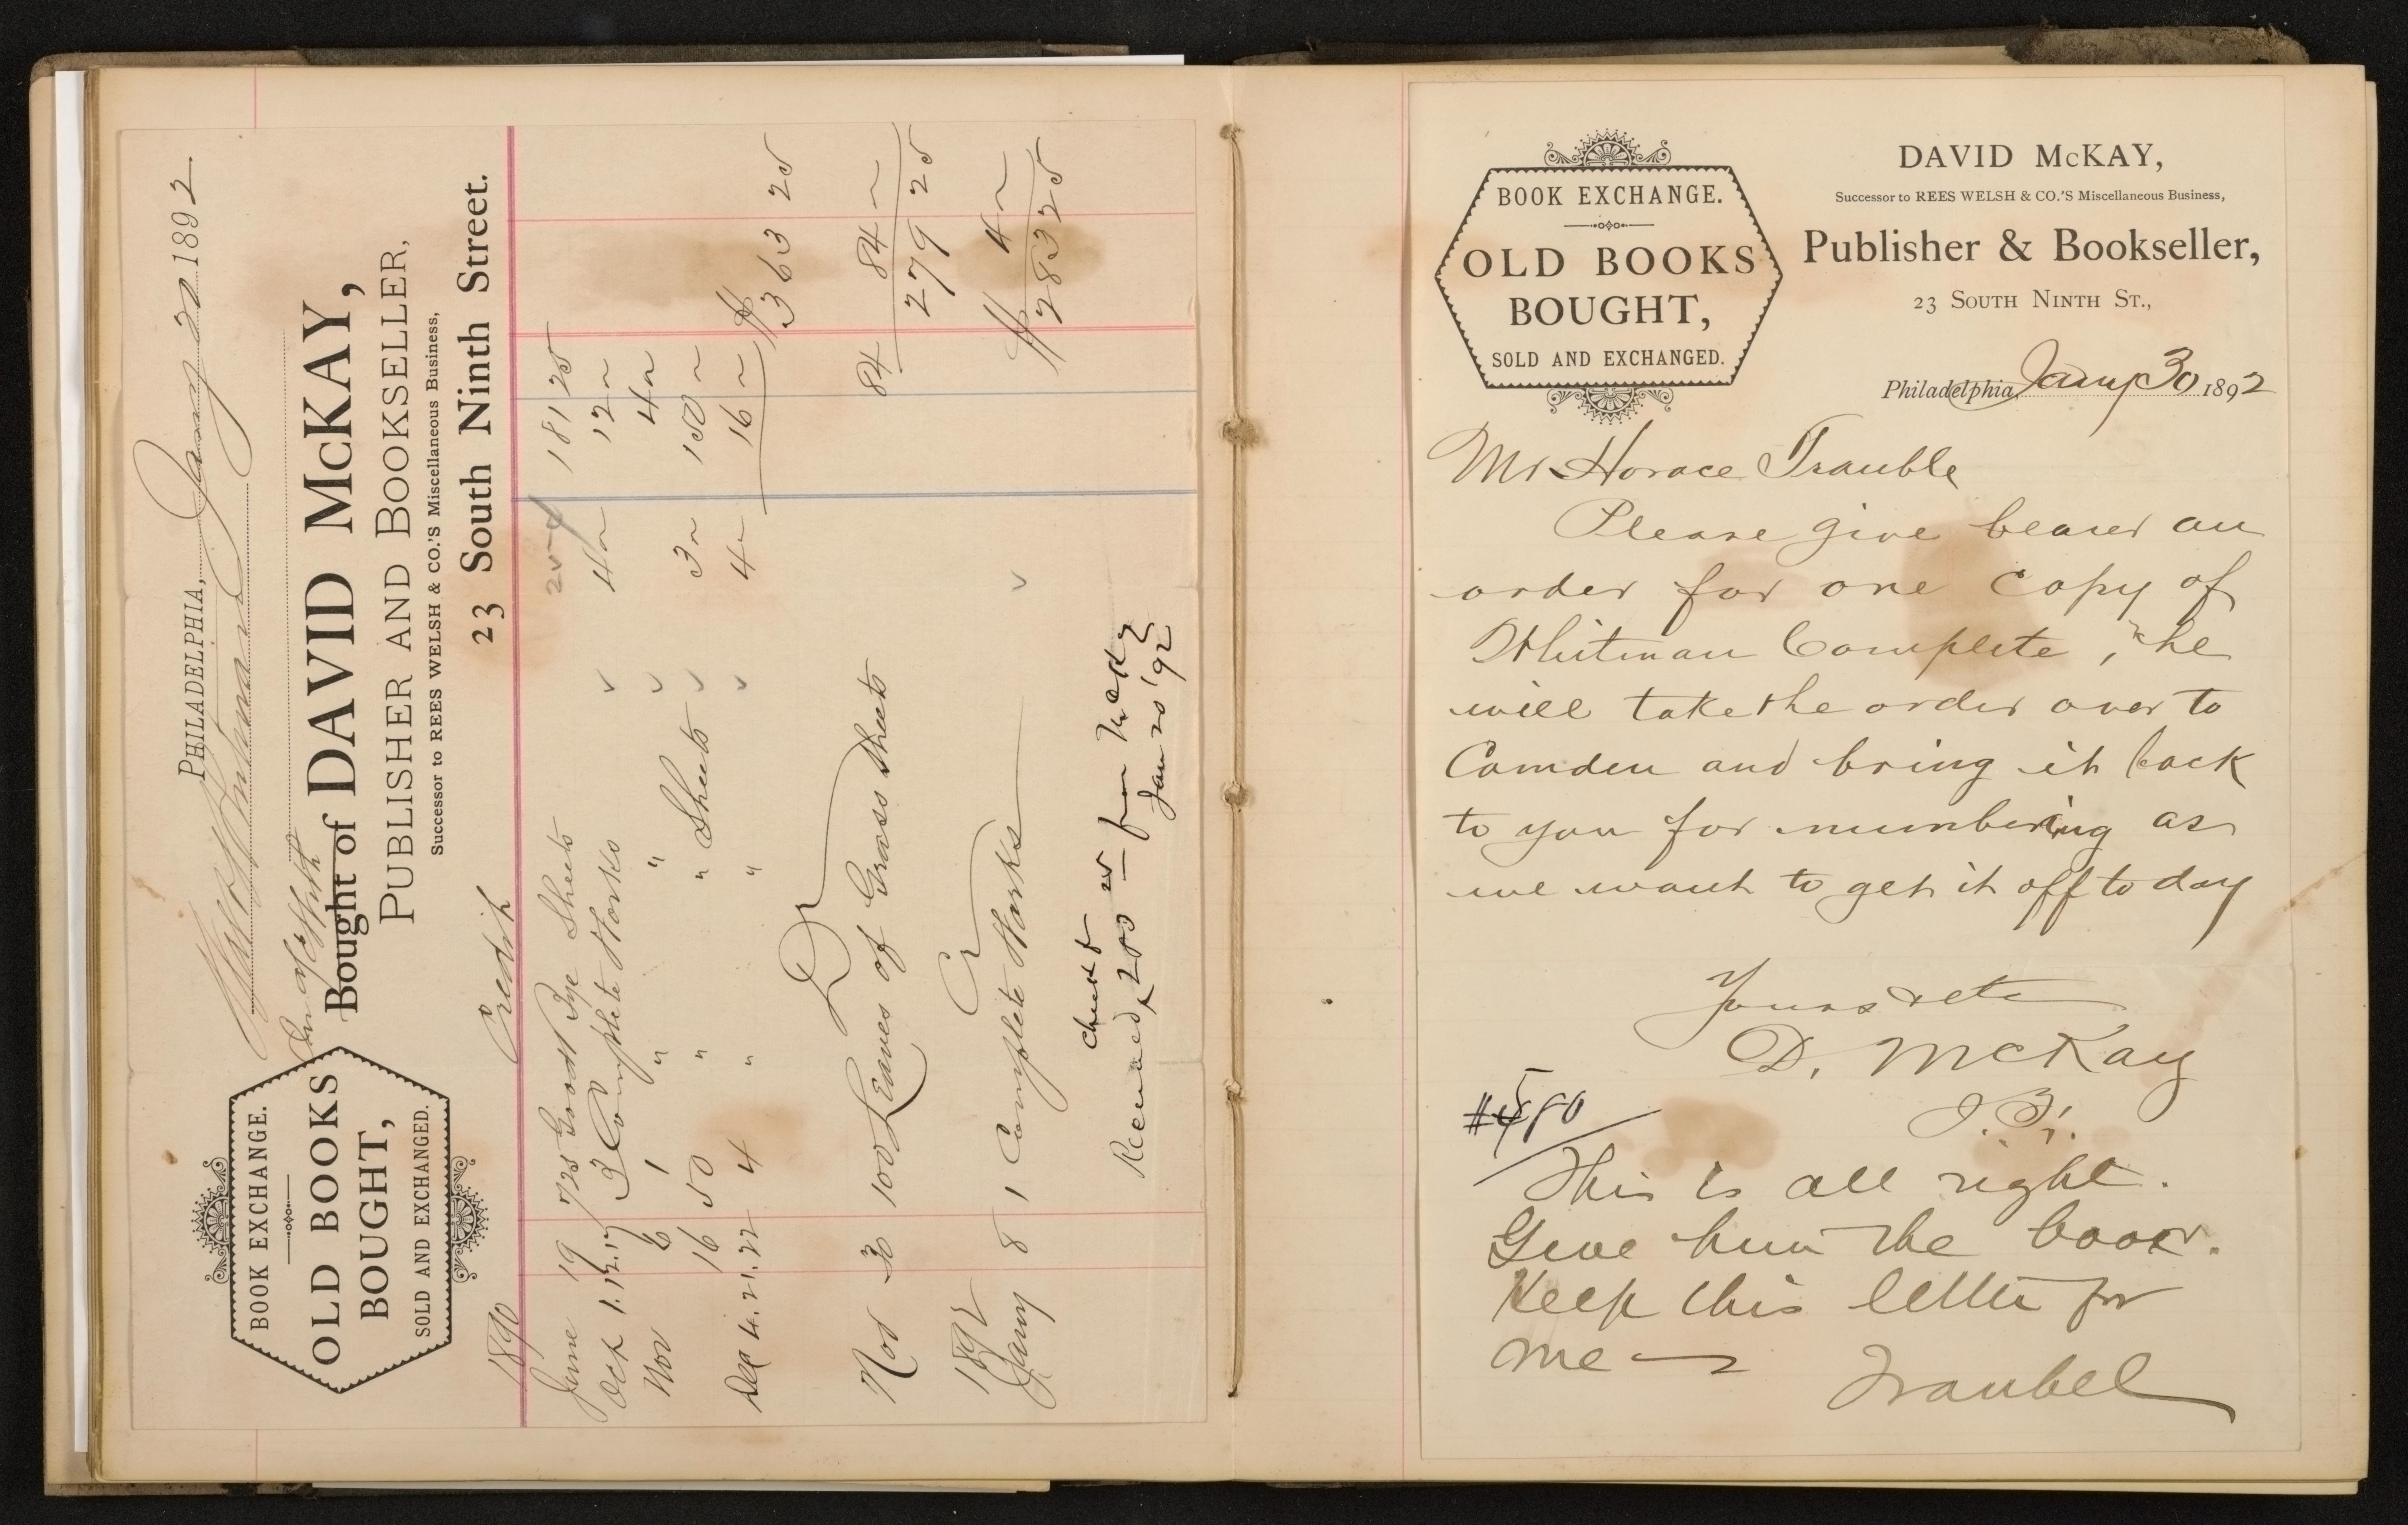 BOOK EXCHANGE.
OLD BOOKS
BOUGHT,
SOLD AND EXCHANGED.
PHILADELPHIA, Jany 20 1892
Walt Whitman
in a/c with
Bought of DAVID McKAY,
PUBLISHER AND BOOKSELLER,
Successor to REES WELSH & CO.'S Miscellaneous Business,
23 South Ninth Street.
1890 Credit
June 19 725 Good Bye Sheets 25 181 25
Oct 1.12.17 3 Complete Works 4 12
Nov 6 1 " " 4
16 50 " " Sheets 3 150
Dec 4.21.22 4 " " 4 16
$363 25
Dr
Nov 30 100 Leaves of Grass Sheets 84 84
279 25
1892 Cr
Jany 8 1 Complete Works 4
$283 25
check f
Received 283 25 from McKay
Jan 20 '92
BOOK EXCHANGE.
OLD BOOKS
BOUGHT,
SOLD AND EXCHANGED.
DAVID McKAY,
Successor to REES WELSH & CO.'S Miscellaneous Business,
Publisher & Bookseller,
23 SOUTH NINTH ST.,
Philadelphia, Jany 30 1892
Mr Horace Trauble
Please give bearer an
order for one copy of
Whitman Complete, he
will take the order over to
Camden and bring it back
to you for numbering as
we want to get it off to day
Yours etc
D. McKay
J. B.
This is all right.
Give him the book.
Keep this letter for
me —
Traubel